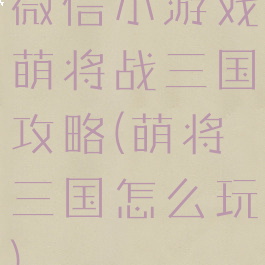 微信小游戏
萌将战三国
攻略(萌将
三国怎么玩
)